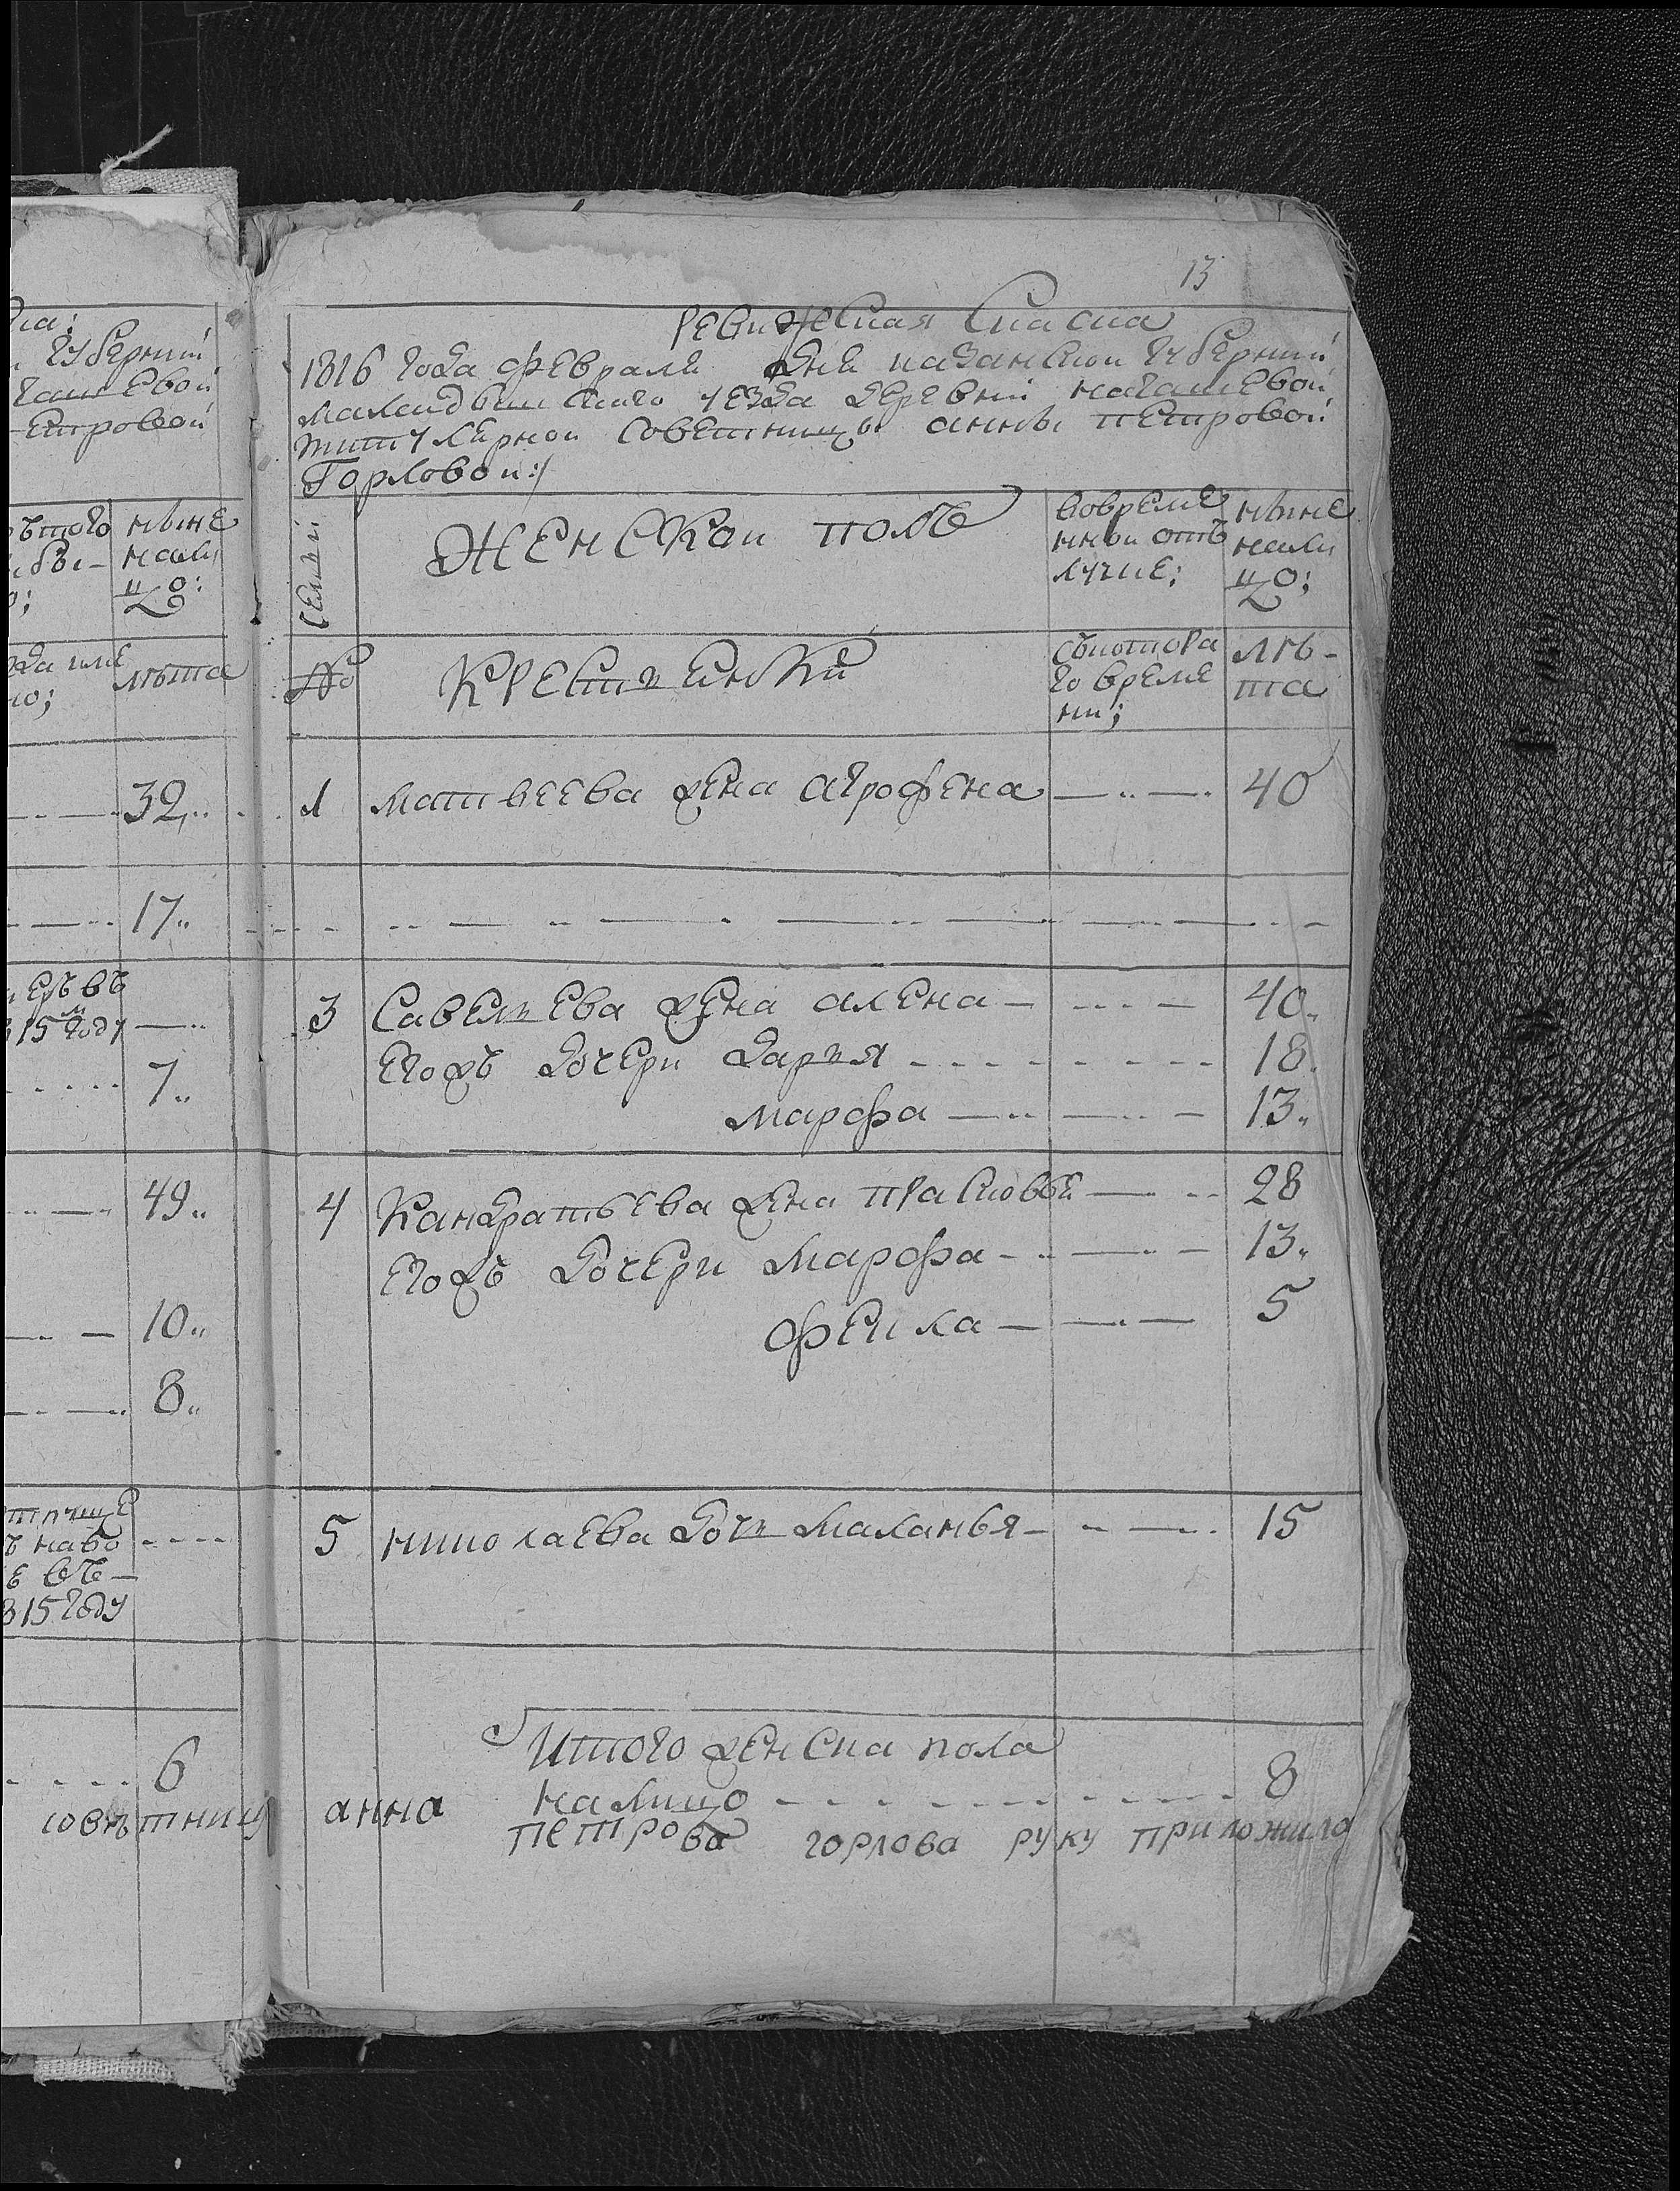 13
Ревижская Скаска
1816 года февраля дня казанской губернии
мамадышского уезда деревни качашевой
титулярной советницы анны петровой
Горловой:/
Семьи
женской полъ
вовреме
нной отъ
лучке;
ныне
нали
цо;
№
крестьенки
съкотора
го време
ни;
лѣ-
та
1 матвеева жена агрофена 40
3 Савельева жена алена 40
егожъ дочери дарья 18
марфа 13
4 Кандратьева жена прасковья 28
егожъ дочери марфа 13
фекла 5
5 николаева дочь маланья 15
Итого женска пола
налицо 8
анна петрова горлова руку приложила
губернии
ташевой
етровой
ныне
нали
цо:
лѣта
32
17
еръ въ
815м году
7
49
10
8
въ
815 году
6
совѣтница